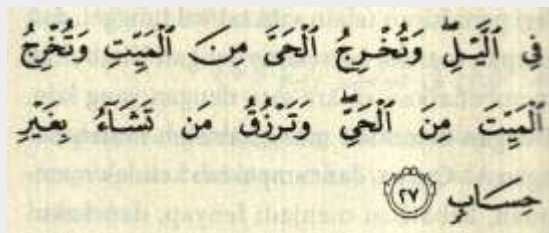 فِي ٱلَّيْلِۖ وَتُخْرِجُ ٱلْحَىَّ مِنَ ٱلْمَيِّتِ وَتُخْرِجُ
ٱلْمَيِّتَ مِنَ ٱلْحَيِّۖ وَتَرْزُقُ مَن تَشَآءُ بِغَيْرِ
حِسَابٍ ٢٧